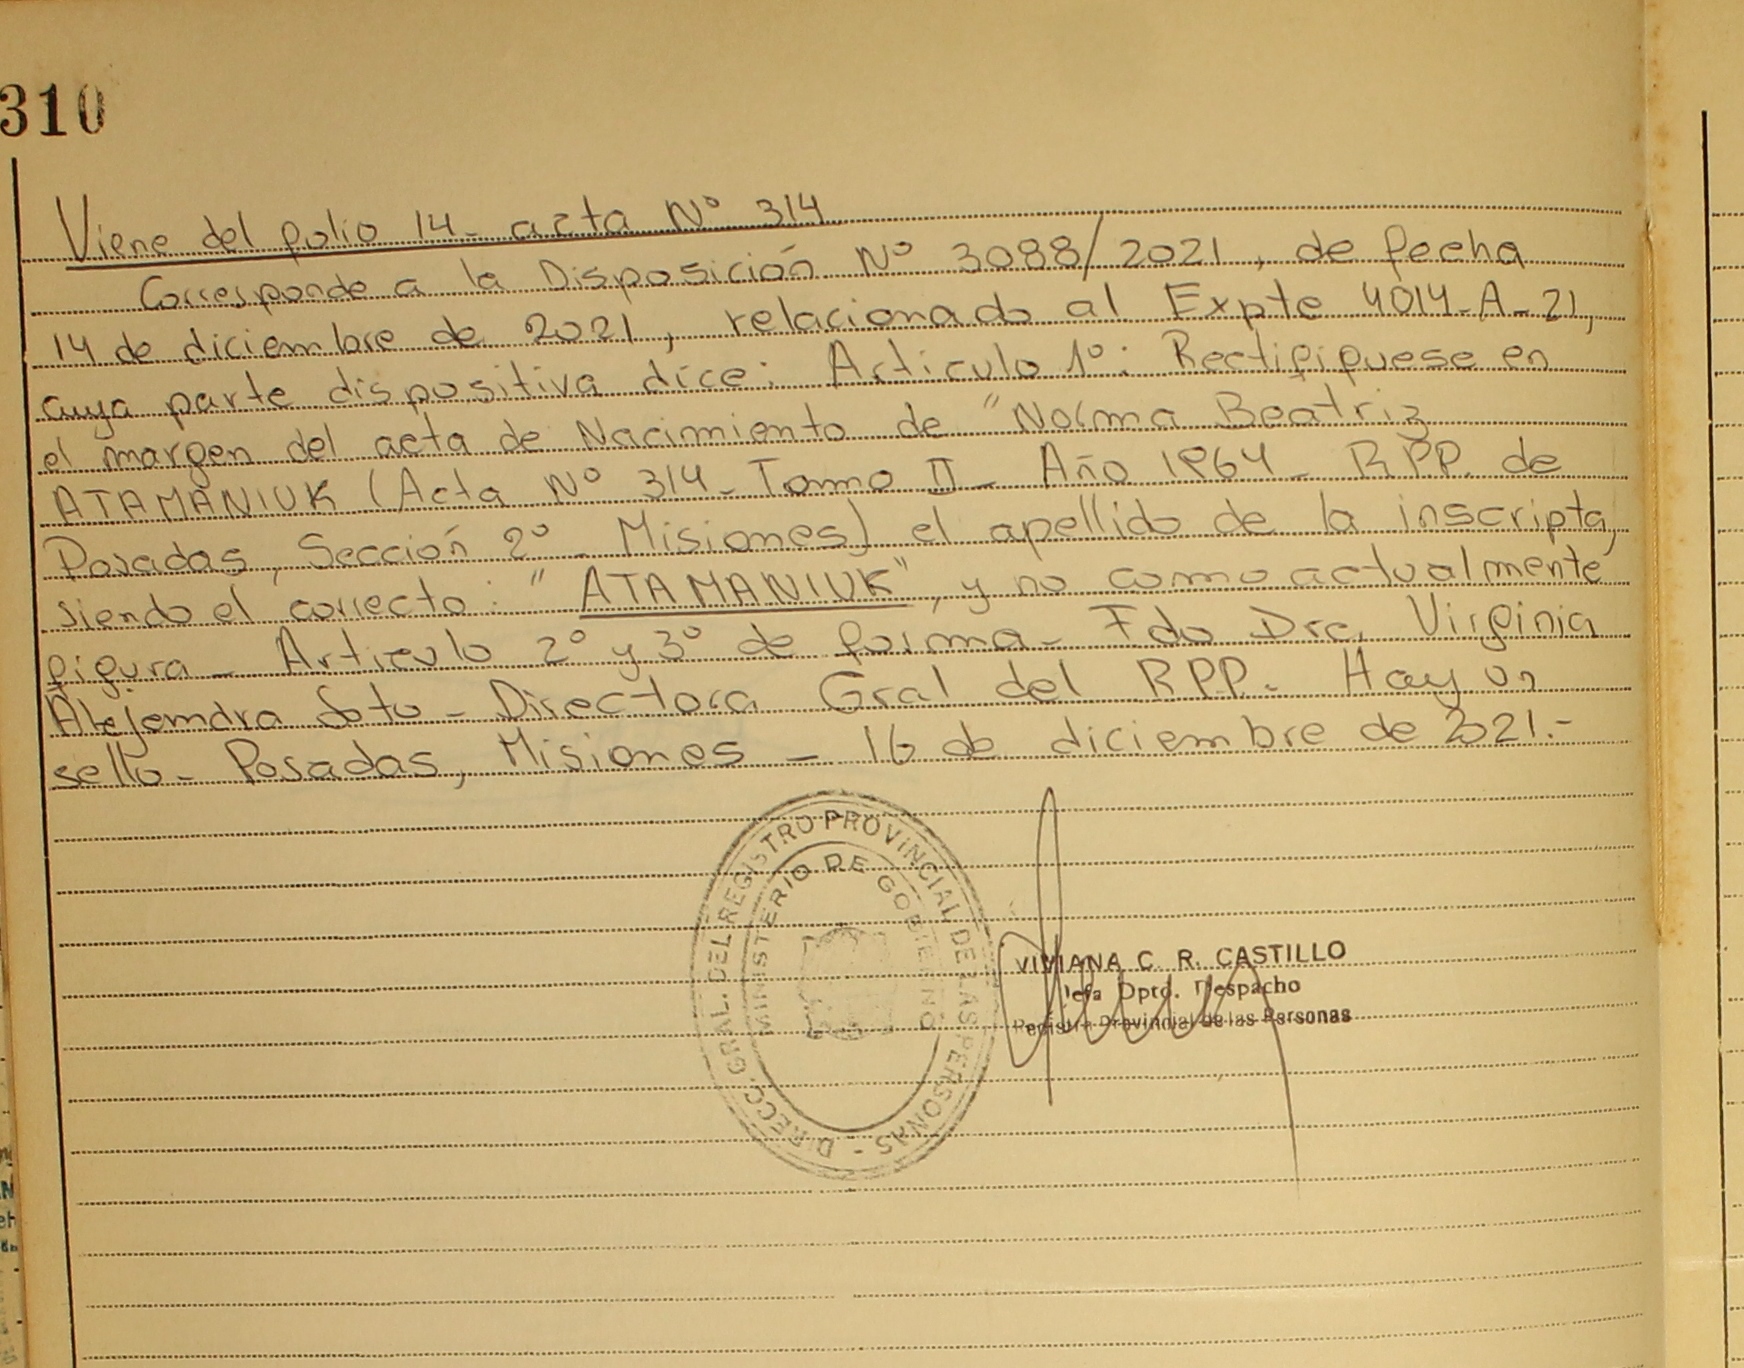 310
Viene del folio 14- acta Nº 314
Corresponde a la Disposición Nº 3088/2021, de fecha
14 de diciembre de 2021, relacionado al Expte 4014-A-21,
cuya parte dispositiva dice: Articulo 1º: Rectifiquese en
el margen del acta de Nacimiento de "Norma Beatriz
ATAMANIUK (Acta Nº 314- Tomo II- Año 1964- RPP. de
Posadas, Sección 2º- Misiones) el apellido de la inscripta,
siendo el correcto: "ATAMANIUK", y no como actualmente
figura- Articulo 2º y 3º de forma- Fdo Dra. Virginia
Alejandra Soto- Directora Gral del RPP. Hay un
sello- Posadas, Misiones - 16 de diciembre de 2021.-
DIRECC. GRAL. DEL REGISTRO PROVINCIAL DE LAS PERSONAS -
MINISTERIO DE GOBIERNO
VIVIANA C. R. CASTILLO
Jefa Dpto. Despacho
Registro Provincial de las Personas